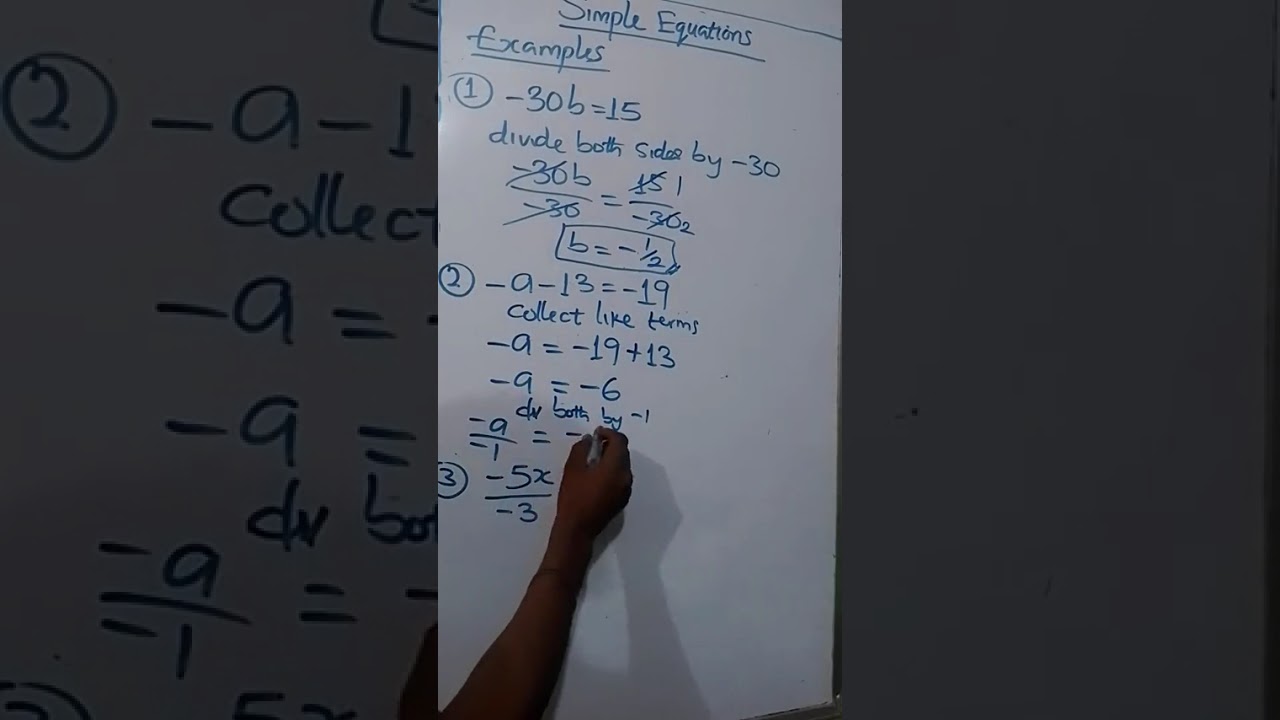 Simple Equations
Examples
① -30b=15
divide both sides by -30
-30b/-30 = 15 1/-30 2
b = -1/2
② -a-13=-19
collect like terms
-a = -19+13
-a = -6
dv both by -1
-a/-1 = -
③ -5x/-3